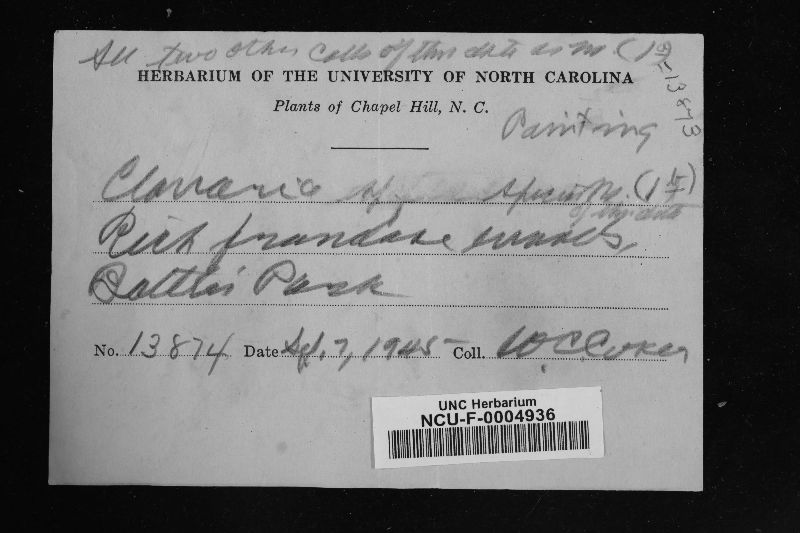 All two other colls of this date as No. (1
13873
HERBARIUM OF THE UNIVERSITY OF NORTH CAROLINA
Plants of Chapel Hill, N. C.
Painting
Clavaria
of this date
Rich woods,
Battle's Park
No. 13874 Date Sep. 7, 1945 Coll. W.C. Coker
UNC Herbarium
NCU-F-0004936